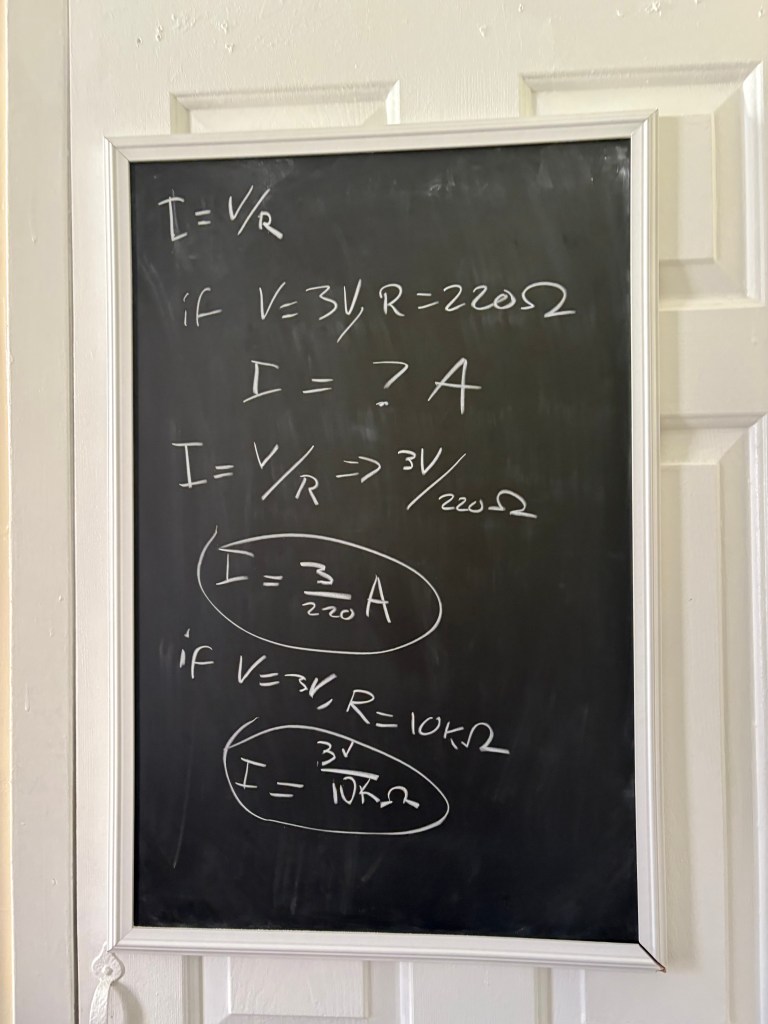 I = V/R
if V=3V, R=220Ω
I = ? A
I = V/R => 3V/220Ω
I = 3/220 A
if V=3V, R=10KΩ
I = 3V/10KΩ